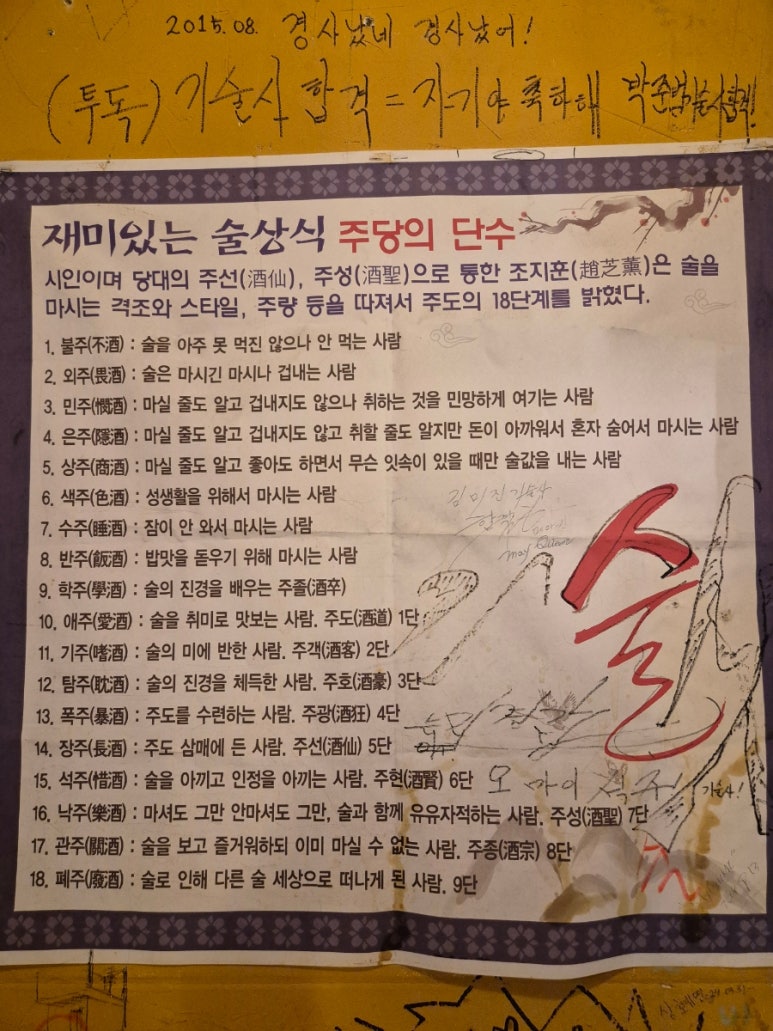 2015.08. 경사났네 경사났어!
(투독) 기술사 합격 = 자기야 축하해 박준범기술사합격!
재미있는 술상식 주당의 단수
시인이며 당대의 주선(酒仙), 주성(酒聖)으로 통한 조지훈(趙芝薰)은 술을
마시는 격조와 스타일, 주량 등을 따져서 주도의 18단계를 밝혔다.
1. 불주(不酒) : 술을 아주 못 먹진 않으나 안 먹는 사람
2. 외주(畏酒) : 술은 마시긴 마시나 겁내는 사람
3. 민주(憫酒) : 마실 줄도 알고 겁내지도 않으나 취하는 것을 민망하게 여기는 사람
4. 은주(隱酒) : 마실 줄도 알고 겁내지도 않고 취할 줄도 알지만 돈이 아까워서 혼자 숨어서 마시는 사람
5. 상주(商酒) : 마실 줄도 알고 좋아도 하면서 무슨 잇속이 있을 때만 술값을 내는 사람
6. 색주(色酒) : 성생활을 위해서 마시는 사람
7. 수주(睡酒) : 잠이 안 와서 마시는 사람
8. 반주(飯酒) : 밥맛을 돋우기 위해 마시는 사람
9. 학주(學酒) : 술의 진경을 배우는 주졸(酒卒)
10. 애주(愛酒) : 술을 취미로 맛보는 사람. 주도(酒道) 1단
11. 기주(嗜酒) : 술의 미에 반한 사람. 주객(酒客) 2단
12. 탐주(耽酒) : 술의 진경을 체득한 사람. 주호(酒豪) 3단
13. 폭주(暴酒) : 주도를 수련하는 사람. 주광(酒狂) 4단
14. 장주(長酒) : 주도 삼매에 든 사람. 주선(酒仙) 5단
15. 석주(惜酒) : 술을 아끼고 인정을 아끼는 사람. 주현(酒賢) 6단
16. 낙주(樂酒) : 마셔도 그만 안마셔도 그만, 술과 함께 유유자적하는 사람. 주성(酒聖) 7단
17. 관주(關酒) : 술을 보고 즐거워하되 이미 마실 수 없는 사람. 주종(酒宗) 8단
18. 폐주(廢酒) : 술로 인해 다른 술 세상으로 떠나게 된 사람. 9단
김미진
합격
may
기 술 사
오 마이